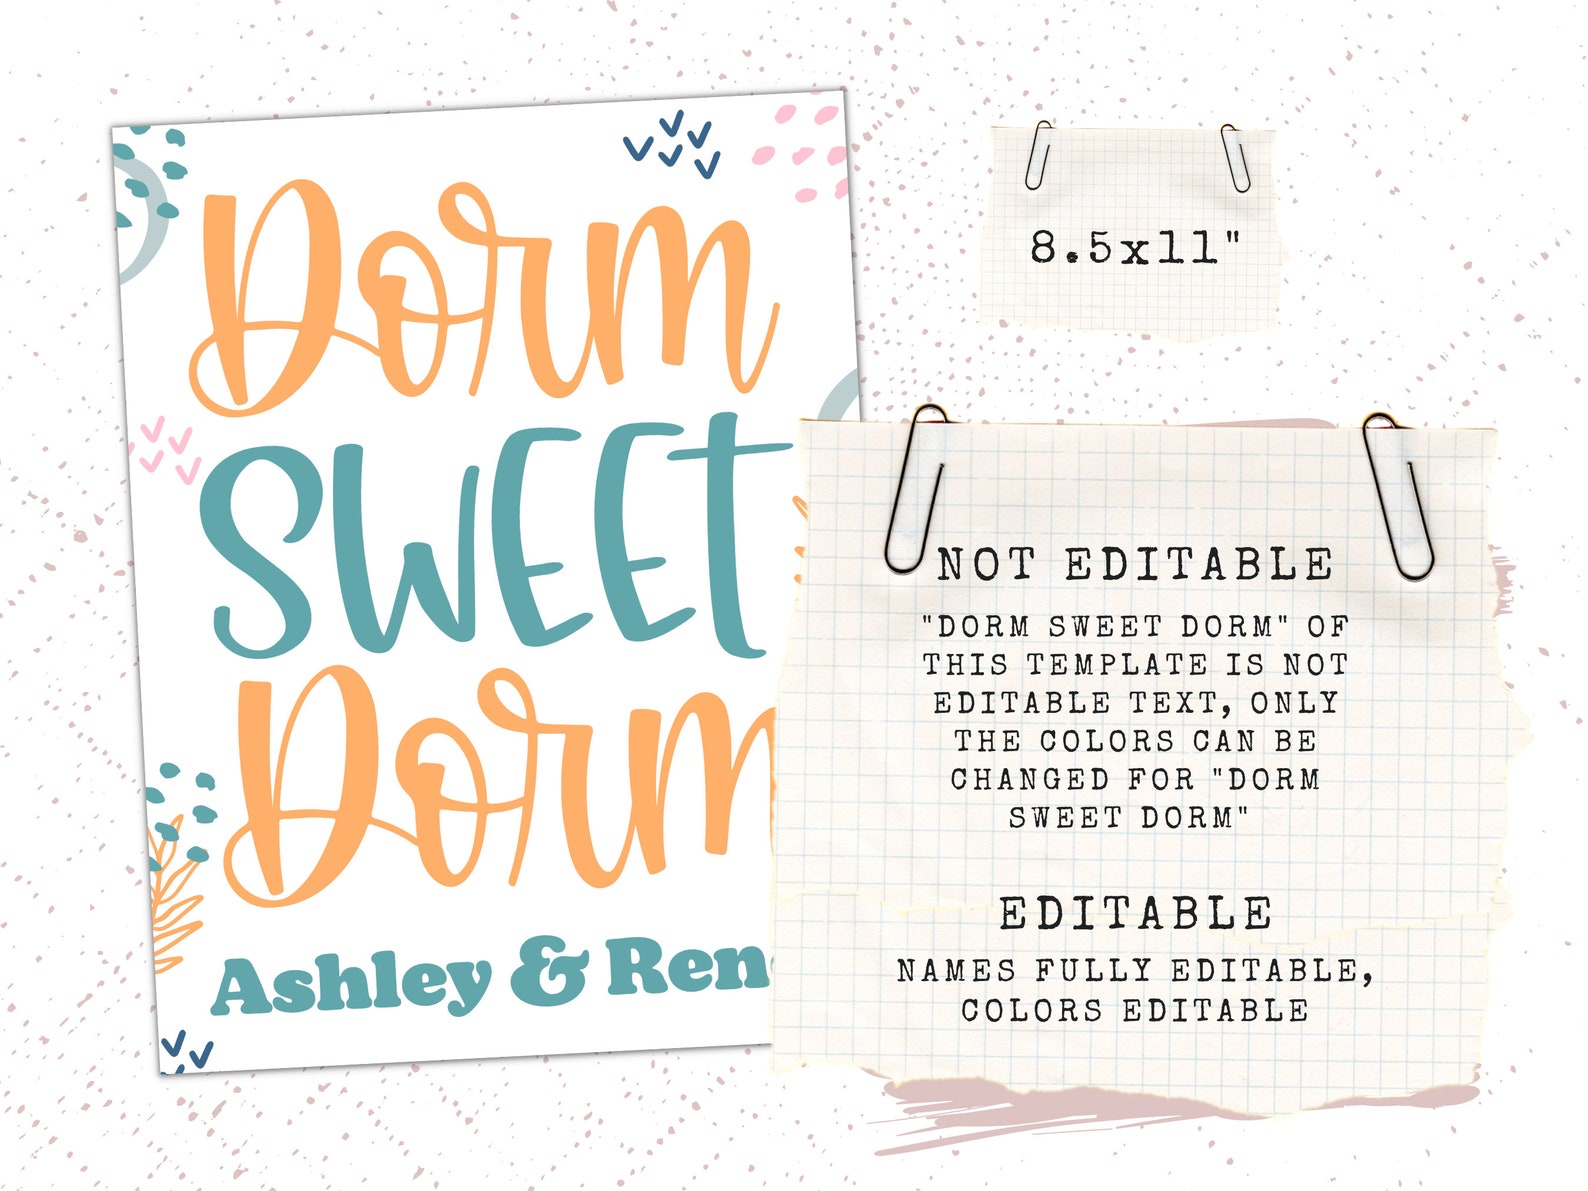 Dorm
SWEET
Dorm
Ashley &
8.5x11"
NOT EDITABLE
"DORM SWEET DORM" OF
THIS TEMPLATE IS NOT
EDITABLE TEXT, ONLY
THE COLORS CAN BE
CHANGED FOR "DORM
SWEET DORM"
EDITABLE
NAMES FULLY EDITABLE,
COLORS EDITABLE